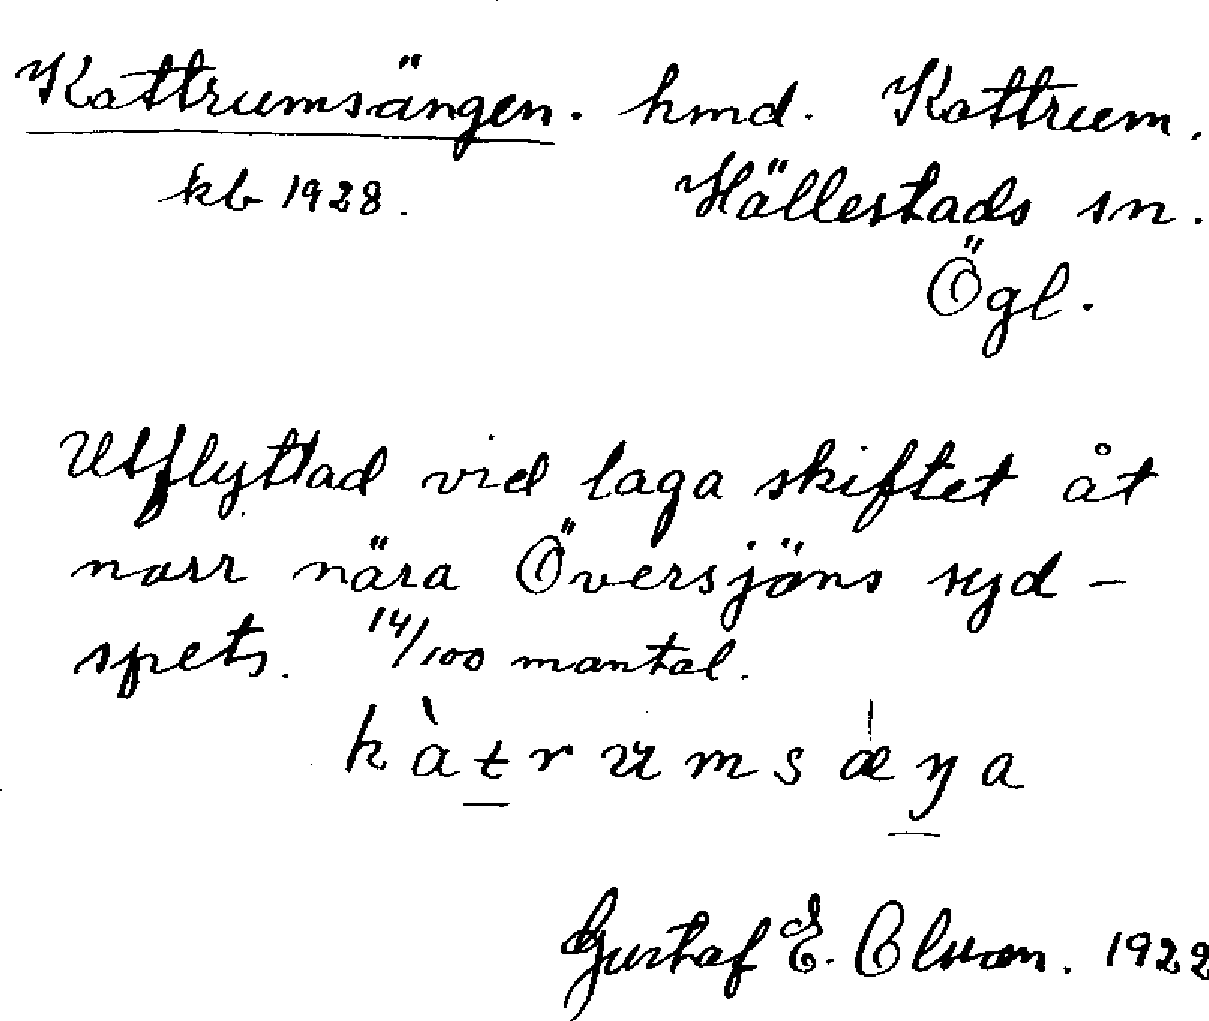 Kattrumsängen. hmd. Kattrum.
kb 1928. Hällestads sn.
Ögl.
Utflyttad vid laga skiftet åt
norr nära Översjöns syd-
spets. 14/100 mantal.
kàtrumsæŋa
Gustaf E. Olsson. 1922